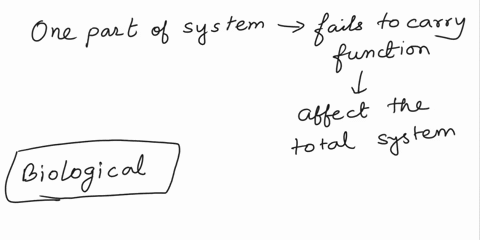 One part of system → fails to carry
function
↓
affect the
total system
Biological